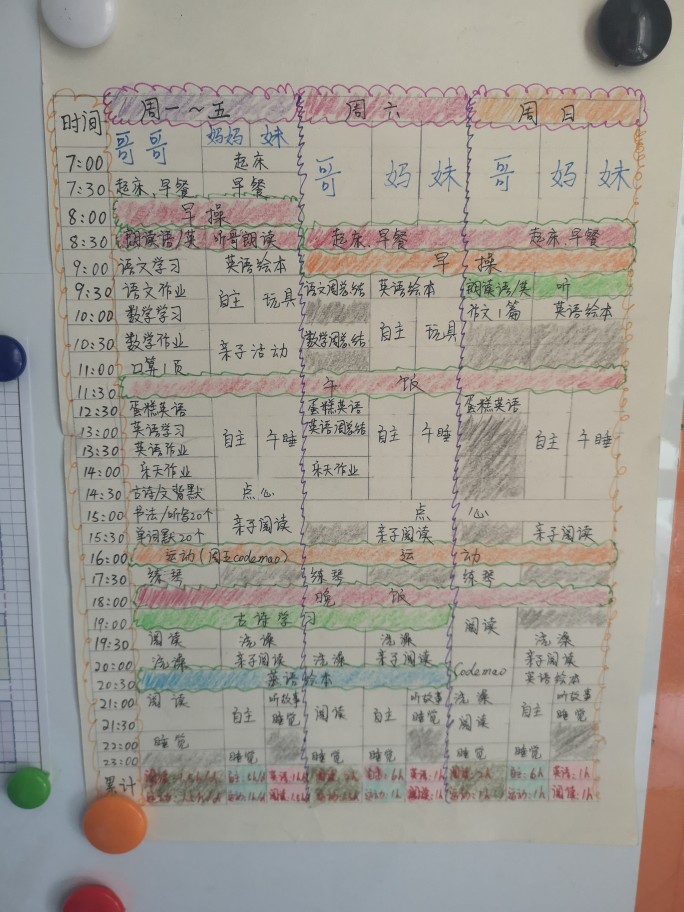 时间 周一～五 周六 周日
哥哥 妈妈 妹 哥 妈 妹 哥 妈 妹
7:00 起床
7:30 起床、早餐 早餐
8:00 早操
8:30 朗读语/英 听哥朗读 起床、早餐 起床、早餐
9:00 语文学习 英语绘本 早操
9:30 语文作业 自主 玩具 语文周总结 英语绘本 朗读语/英 听
10:00 数学学习 自主 玩具 作文1篇 英语绘本
10:30 数学作业 亲子活动 数学周总结
11:00 口算1页
11:30 午饭
12:30 蛋糕英语 蛋糕英语 蛋糕英语
13:00 英语学习 自主 午睡 英语周总结 自主 午睡 自主 午睡
13:30 英语作业
14:00 乐天作业 乐天作业
14:30 古诗/文背默 点心
15:00 书法/听写20个 亲子阅读 点心
15:30 单词默20个 亲子阅读 亲子阅读
16:00 运动(周五codemao) 运动
17:30 练琴 练琴 练琴
18:00 晚饭
19:00 古诗学习 阅读
19:30 阅读 洗澡 洗澡
20:00 洗澡 亲子阅读 洗澡 亲子阅读 Codemao 亲子阅读
20:30 英语绘本 英语绘本
21:00 阅读 自主 听故事 阅读 自主 听故事 洗澡 自主 听故事
21:30 睡觉 睡觉 阅读 睡觉
22:00 睡觉
23:00 睡觉 睡觉 睡觉 睡觉 睡觉
累计